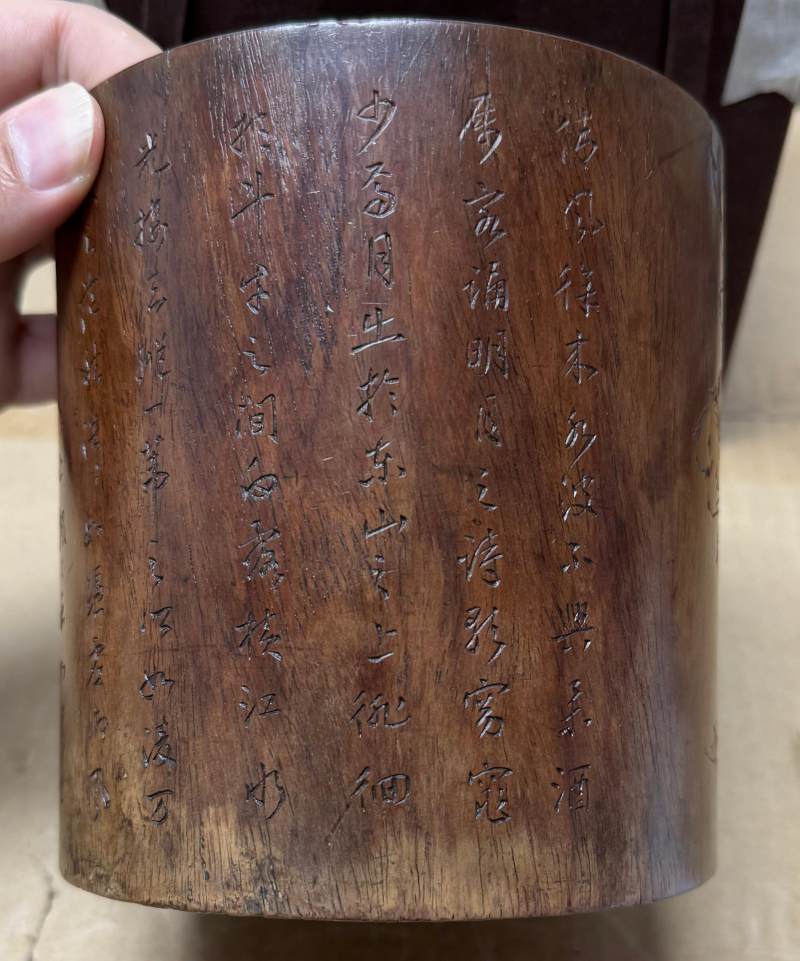 清風徐来水波不興舉酒
属客誦明月之詩歌窈窕
少焉月出於東山之上徘徊
於斗牛之間白露横江水
光接天縱一葦之所如凌万
之茫然浩浩如憑虚御風